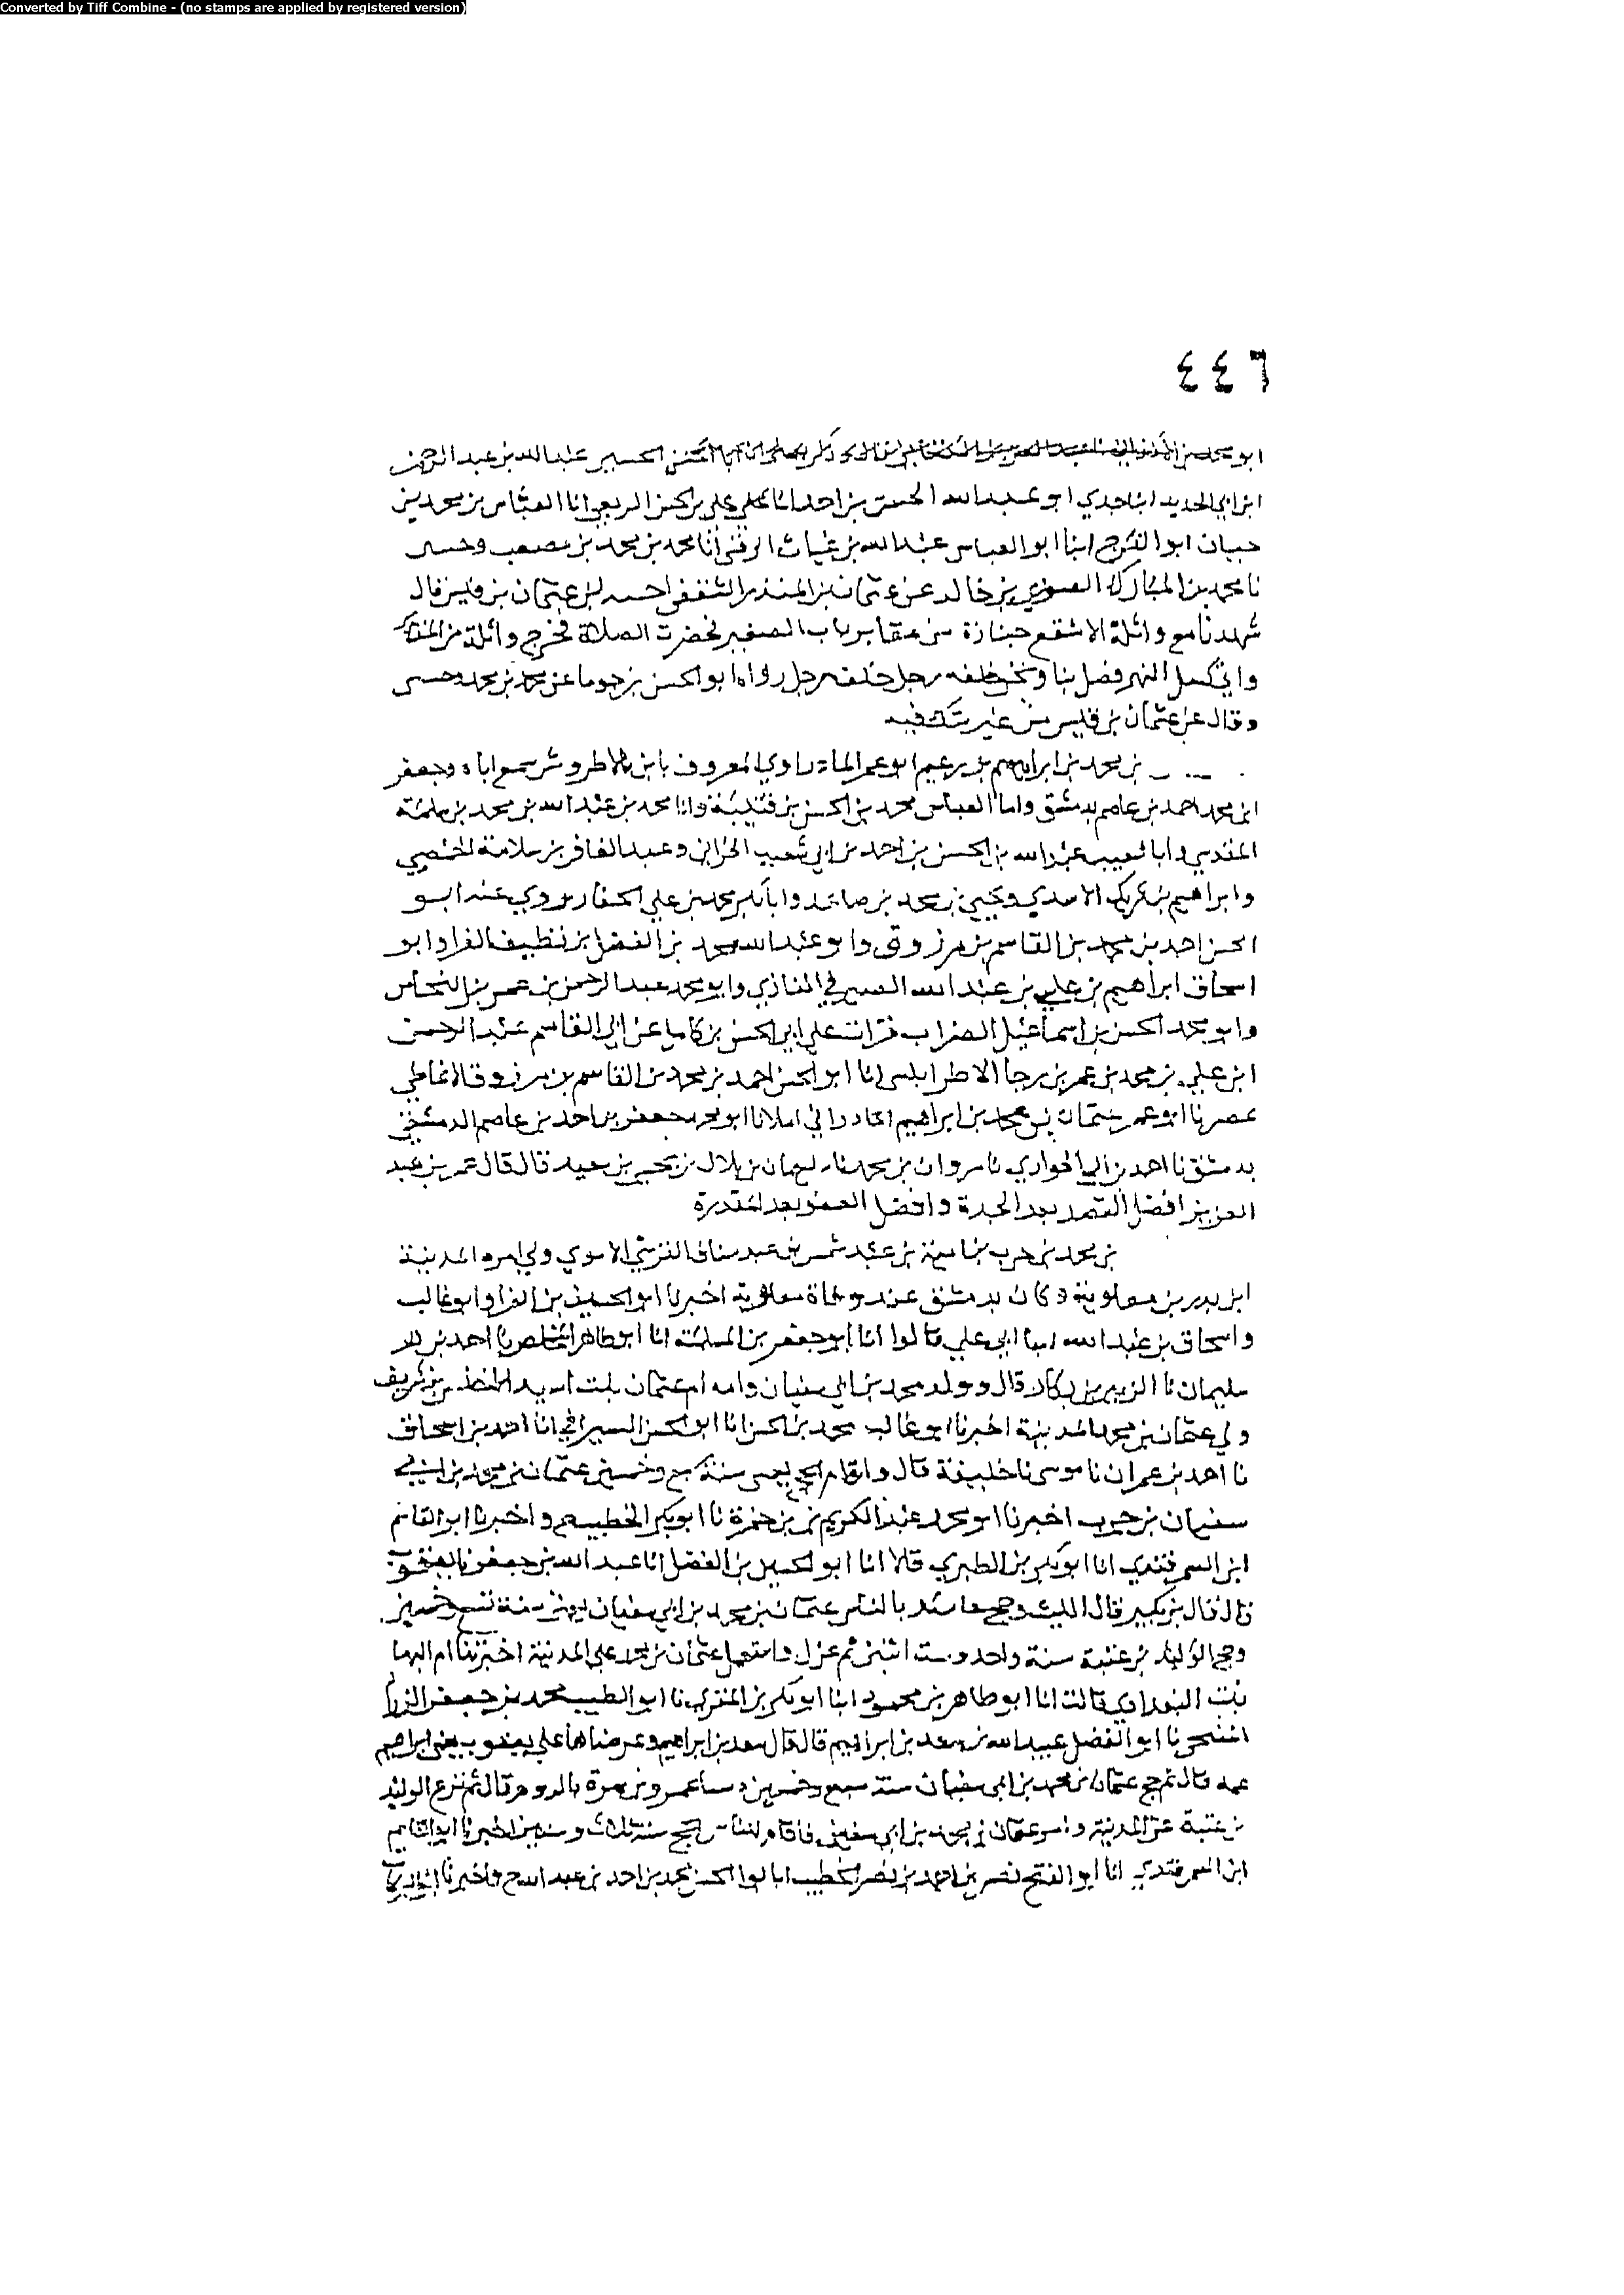 Converted by Tiff Combine - (no stamps are applied by registered version)
٤٤٦
ابو محمد بن عبدالله بن عبد الرحمن
ابن ابي الحديد انبا جدي ابو عبدالله الحسن بن احمد انا علي بن الحسن الربعي انا العباس بن محمد بن
حبان ابو الفرج انبا ابو العباس عبدالله بن غياث الرقي انا محمد بن محمد بن مصعب وحسى
نا محمد بن المبارك الصوري بن خالد عن عثمان بن المنذر الثقفي احسبه لبن عثمان بن قيس قال
شهدنا مع واثلة الاسقع جنازة من مقابر باب الصغير فحضرت الصلاة فخرج واثلة من المقابر
واتى النهر فصل بنا ونحن خلفه رجل خلف رجل رواه ابو الحسن بن جوصا عن محمد بن محمد وحسى
وقال عن عثمان بن قيس من غير شك فيه
بن محمد بن ابراهيم بن ابو عمر المادراوي المعروف بابن الاطروش سمع اباه وجعفر
ابن محمد احمد بن عاصم بدمشق وابا العباس محمد بن الحسن بن قتيبة وانا محمد بن عبدالله بن محمد بن سلمة
المقدسي وابا شعيب عبدالله بن الحسن بن احمد بن ابي شعيب الحراني وعبد الغافر بن سلامة الحمصي
وابراهيم بن الاسدي ويحيى بن محمد بن صاعد وابا بكر محمد بن علي الحفار روى عنه ابو
الحسن احمد بن محمد بن القاسم بن مرزوق وابو عبدالله محمد بن الفضل بن نظيف الفرا وابو
اسحاق ابراهيم بن علي بن عبدالله الصيرفي وابو محمد عبد الرحمن بن عمر بن النحاس
وابو محمد الحسن بن اسماعيل الضراب قرات على ابي الحسن بن كامل عن ابي القاسم عبد الرحمن
ابن علي بن محمد بن عمر بن رجا الاطرابلسى انا ابو الحسن احمد بن محمد بن القاسم بن مرزوق الانماطي
بمصر نا ابو عمر عثمان بن محمد بن ابراهيم المادرائي املا نا ابو محمد جعفر بن احمد بن عاصم الدمشقي
بدمشق نا احمد بن ابي الحواري نا مروان بن محمد نا سليمان بن بلال بن يحيى بن سعيد قال قال عمر بن عبد
العزيز افضل القصد بعد الجدة وافضل العفو بعد المقدرة
بن محمد بن حرب بن امية بن عبد شمس بن عبد مناف القرشي الاموي ولي امره المدينة
ابن يزيد بن معاوية وكان بدمشق عند وفاة معاوية اخبرنا ابو الحسين بن الفرا وابو غالب
واسحاق بن عبدالله انبا ابي علي قالوا انا ابو جعفر بن المسلمة انا ابو طاهر المخلص نا احمد بن
سليمان نا الزبير بن بكار قال وولد محمد بن ابي سفيان وامه ام عثمان بنت اسيد بن شريف
ولي عثمان بن محمد المدينة اخبرنا ابو غالب محمد بن الحسن انا ابو الحسن السيرافي انا احمد بن اسحاق
نا احمد بن عمران نا موسى نا خليفة قال واقام الحج يعني سنة وخمسين عثمان بن محمد بن ابي
سفيان بن حرب اخبرنا ابو محمد عبد الكريم بن حمزة نا ابو بكر الخطيب ح واخبرنا ابو القاسم
ابن السمرقندي انا ابو بكر بن الطبري قالا انا ابو الحسين بن الفضل انا عبدالله بن جعفر نا يعقوب
قال قال بن بكير قال الليث وحج عامئذ بالناس عثمان بن محمد بن ابي سفيان سنة تسع وخمسين
وحج الوليد بن عتبة سنة واحد وست اثنين ثم عزل واستعمل عثمان بن محمد على المدينة اخبرتنا ام البها
بنت البغدادي قالت انا ابو طاهر بن محمود انبا ابو بكر بن المقري نا ابو الطيب محمد بن جعفر الزراد
المنبجي نا ابو الفضل عبيدالله بن سعد بن ابراهيم قال قال سعد بن ابراهيم وعرضناها على يعقوب يعني ابراهيم
عمه قال ثم حج عثمان بن محمد بن ابي سفيان سنة سبع وخمسين وشتا عمرو بن مرة بالروم قال ثم نزع الوليد
بن عتبة عن المدينة وامر عثمان بن محمد بن ابي سفين فاقام للناس الحج سنة ثلاث وستين اخبرنا ابو القاسم
ابن السمرقندي انا ابو الفتح نصر بن احمد بن نصر الخطيب انا ابو الحسن محمد بن احمد بن عبدالله ح واخبرنا